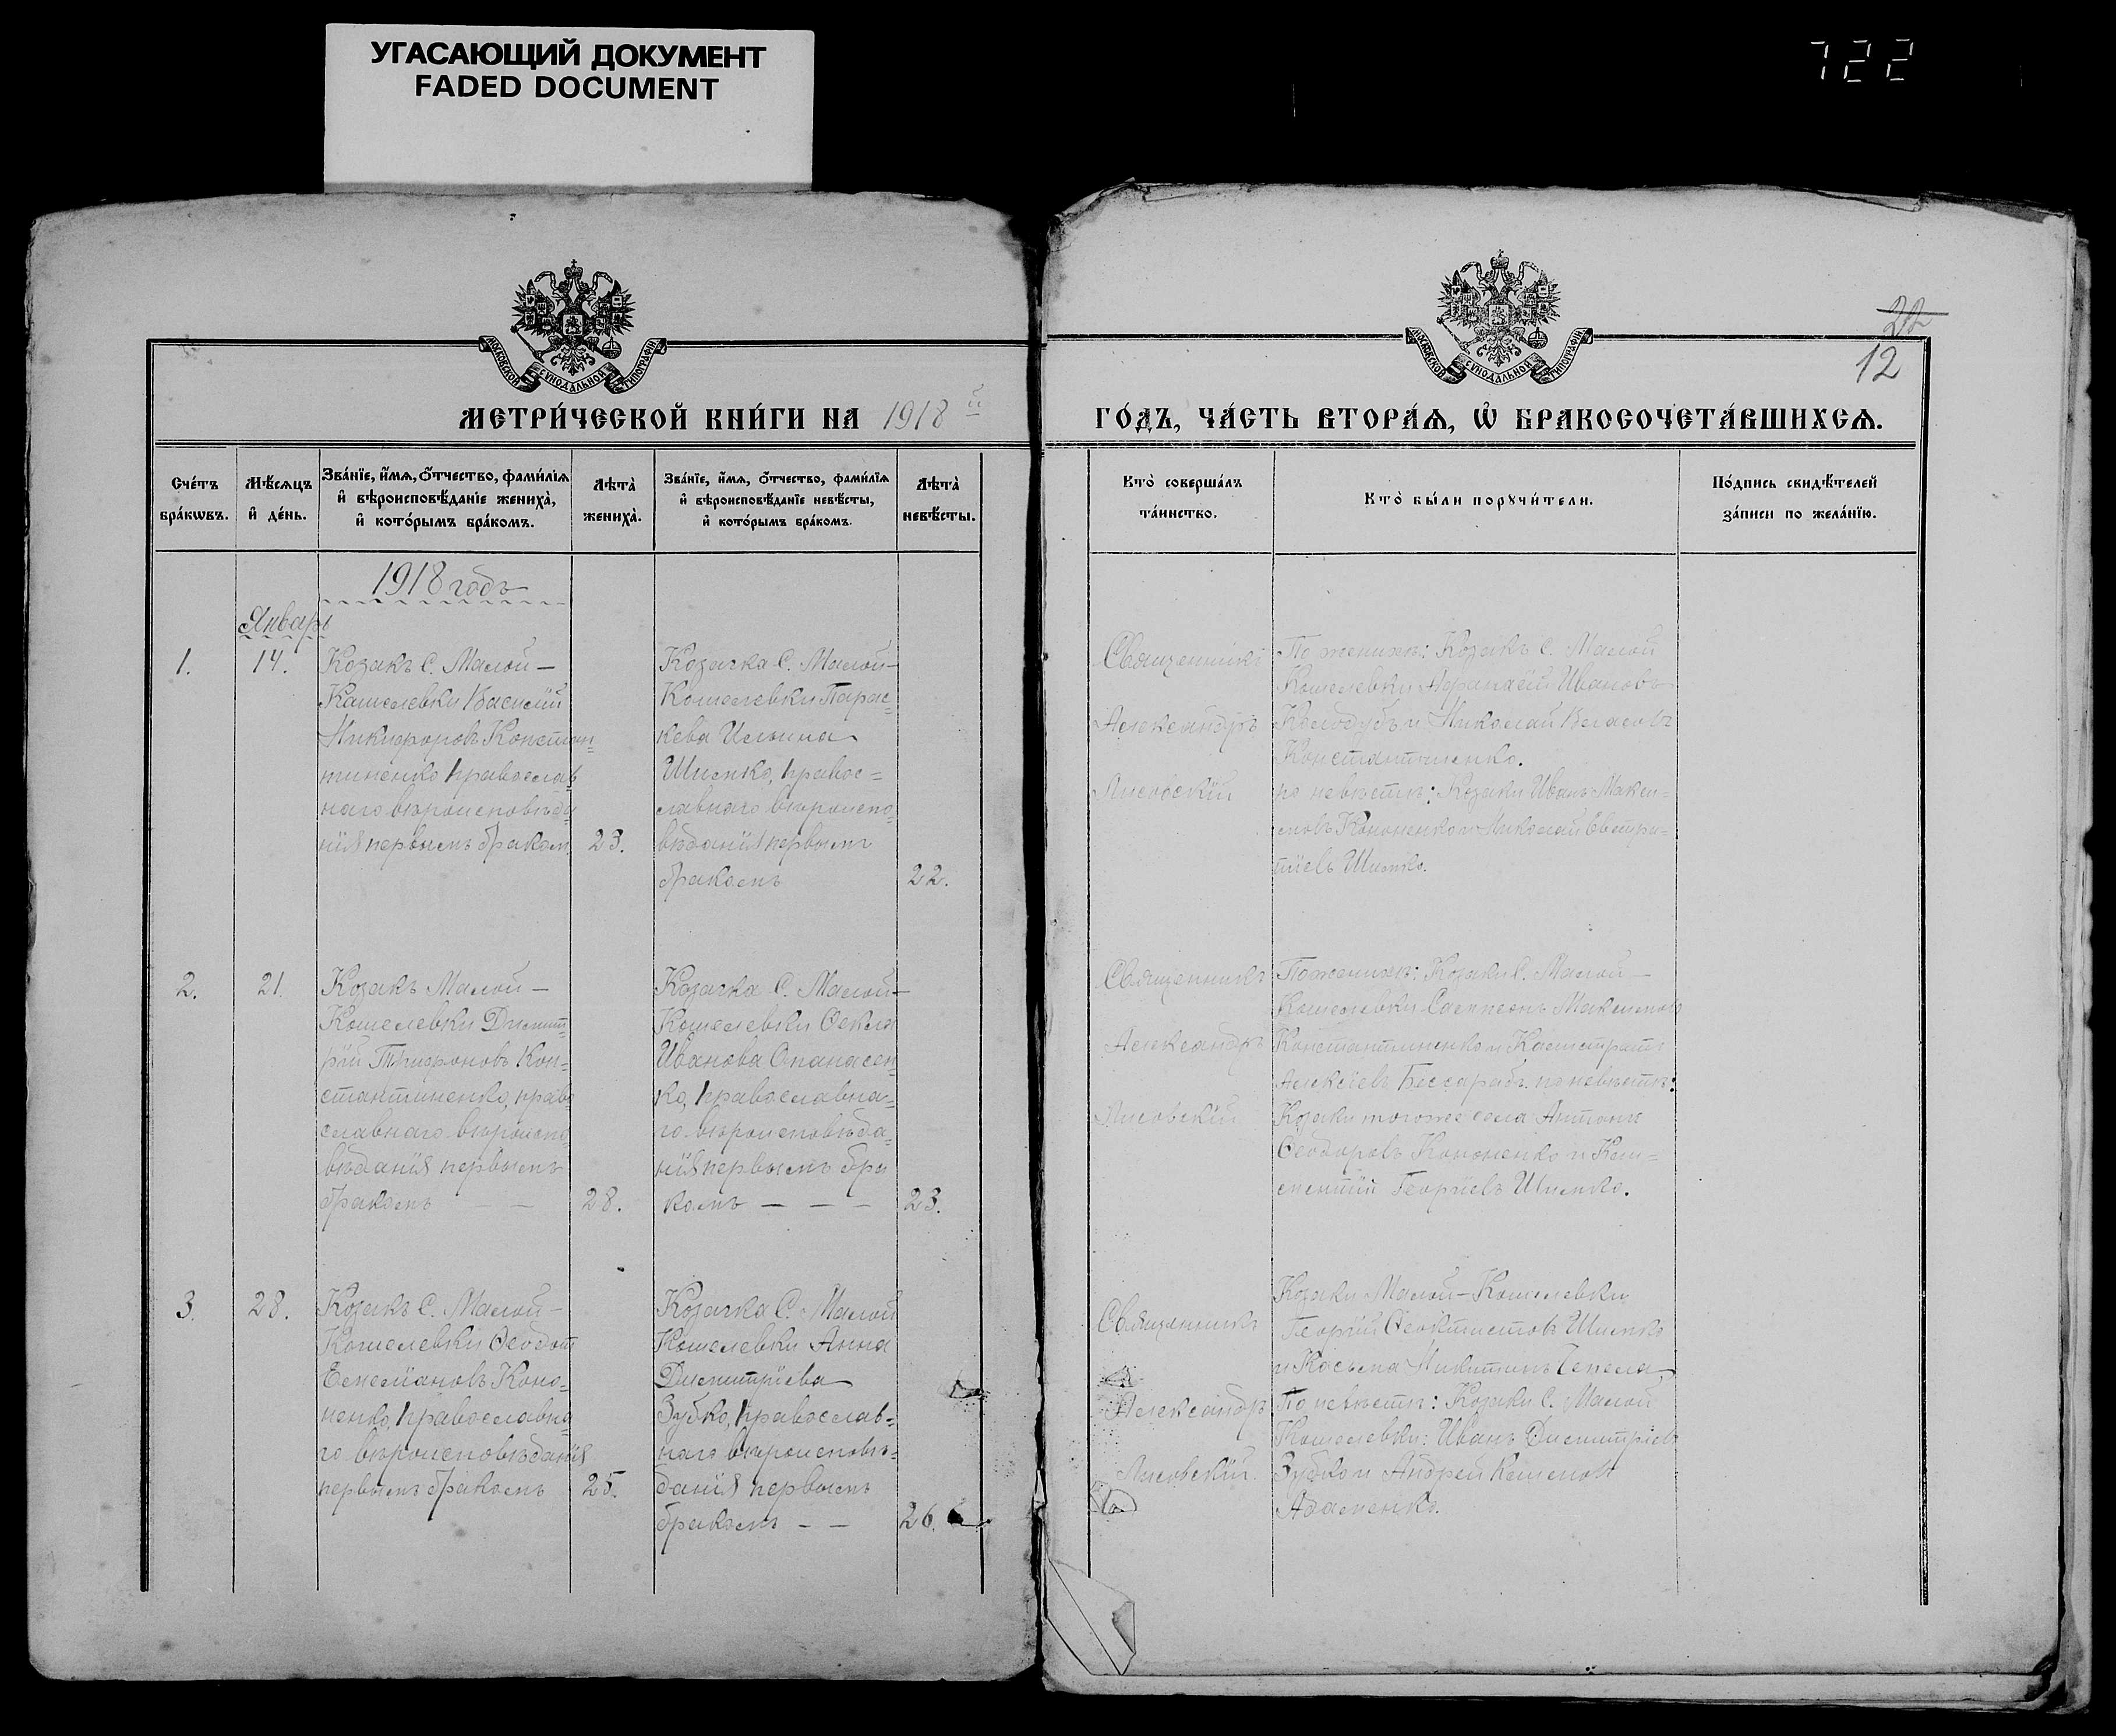 УГАСАЮЩИЙ ДОКУМЕНТ
FADED DOCUMENT
722
22
12
МОСКОВСКОЙ СѴНОДАЛЬНОЙ ТИПОГРАФІИ
МОСКОВСКОЙ СѴНОДАЛЬНОЙ ТИПОГРАФІИ
МЕТРИ́ЧЕСКОЙ КНИ́ГИ НА 1918 й
ГО́ДЪ, ЧА́СТЬ ВТОРА́Ѧ, Ѽ БРАКОСОЧЕТА́ВШИХСѦ.
Сче́тъ
бра́кѡвъ.
Мѣ́сѧцъ
и҆ де́нь.
Зва́нїе, и҆́мѧ, ѻ҆́тчество, фами́лїѧ
и҆ вѣроисповѣ́данїе жениха̀,
и҆ кото́рымъ бра́комъ.
Лѣта̀
жениха̀.
Зва́нїе, и҆́мѧ, ѻ҆́тчество, фами́лїѧ
и҆ вѣроисповѣ́данїе невѣ́сты,
и҆ кото́рымъ бра́комъ.
Лѣта̀
невѣ́сты.
Кто̀ соверша́лъ
та́инство.
Кто̀ бы́ли порꙋчи́тели.
По́дпись свидѣ́телей
за́писи по жела́нїю.
1918 годъ
Январь
1.
14.
Козакъ С. Малой-
Кошелевки Василій
Никифоровъ Констан=
тиненко, православ
наго вѣроисповѣда
нія первымъ бракомъ
23.
Козачка С. Малой-
Кошелевки Парас=
кева Ильина
Шимко, правос=
лавнаго вѣроиспо=
вѣданія первымъ
бракомъ
22.
Священникъ
Александръ
Лисовскій
По женихѣ: Козакъ С. Малой
Кошелевки Ивановъ
и Николай Власовъ
Константиненко.
по невѣстѣ: Козаки Иванъ Макси=
мовъ Кононенко и Николай Евстра=
тіевъ Шимко.
2.
21.
Козакъ Малой-
Кошелевки Димит=
рій Трифоновъ Кон=
стантиненко, право
славнаго вѣроиспо
вѣданія первымъ
бракомъ — —
28.
Козачка С. Малой-
Кошелевки Ѳекла
Иванова Опанасен=
ко, православна=
го вѣроисповѣда=
нія первымъ бра
комъ — — —
23.
Священникъ
Александръ
Лисовскій
По женихѣ: Козаки С. Малой-
Кошелевки Максимовъ
Константиненко и Калистратъ
Алексіевъ Бессарабъ. по невѣстѣ:
Козаки тогоже села Антонъ
Ѳеодоровъ Кононенко и Кли=
ментій Георгіевъ Шимко.
3.
28.
Козакъ С. Малой-
Кошелевки Ѳеодот
Емеліановъ Коно=
ненко, православна
го вѣроисповѣданія
первымъ бракомъ
25.
Козачка С. Малой
Кошелевки Анна
Димитріева
Зубко, православ=
наго вѣроисповѣ=
данія первымъ
бракомъ — —
26.
Священникъ
Александръ
Лисовскій.
Козаки Малой-Кошелевки
Георгій Ѳеоктистовъ Шимко
и Косьма Никитинъ Чепела
По невѣстѣ: Козаки С. Малой
Кошелевки: Иванъ Димитріев
Зубко и Андрей
Адаменко.